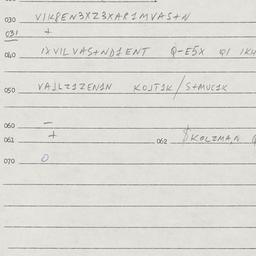 030 VIKPEN3XZ3XAR1MVAS+N
031 +
040 IXVILVAS+ND1ENT Q-E5X Q1 1KH
050 VAJLZ1ZEN1N KOJT1K/S+MUC1K
060 —
061 + 062 $KOLZMAN
070 0